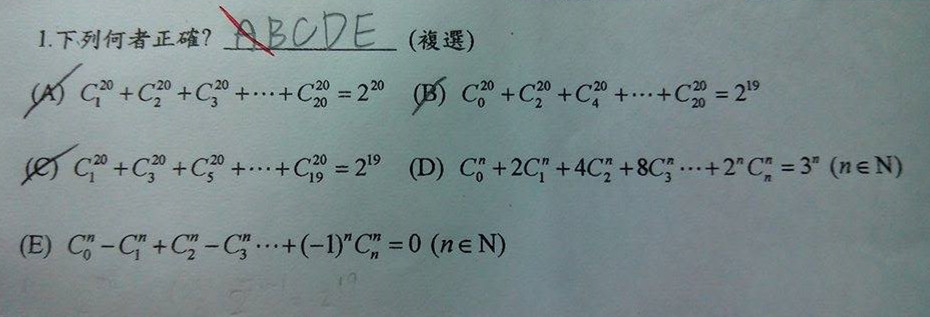 1.下列何者正確? ABCDE (複選)
(A) C₁²⁰ + C₂²⁰ + C₃²⁰ + ⋯ + C₂₀²⁰ = 2²⁰ (B) C₀²⁰ + C₂²⁰ + C₄²⁰ + ⋯ + C₂₀²⁰ = 2¹⁹
(C) C₁²⁰ + C₃²⁰ + C₅²⁰ + ⋯ + C₁₉²⁰ = 2¹⁹ (D) C₀ⁿ + 2C₁ⁿ + 4C₂ⁿ + 8C₃ⁿ ⋯ + 2ⁿCₙⁿ = 3ⁿ (n∈N)
(E) C₀ⁿ − C₁ⁿ + C₂ⁿ − C₃ⁿ ⋯ + (−1)ⁿCₙⁿ = 0 (n∈N)